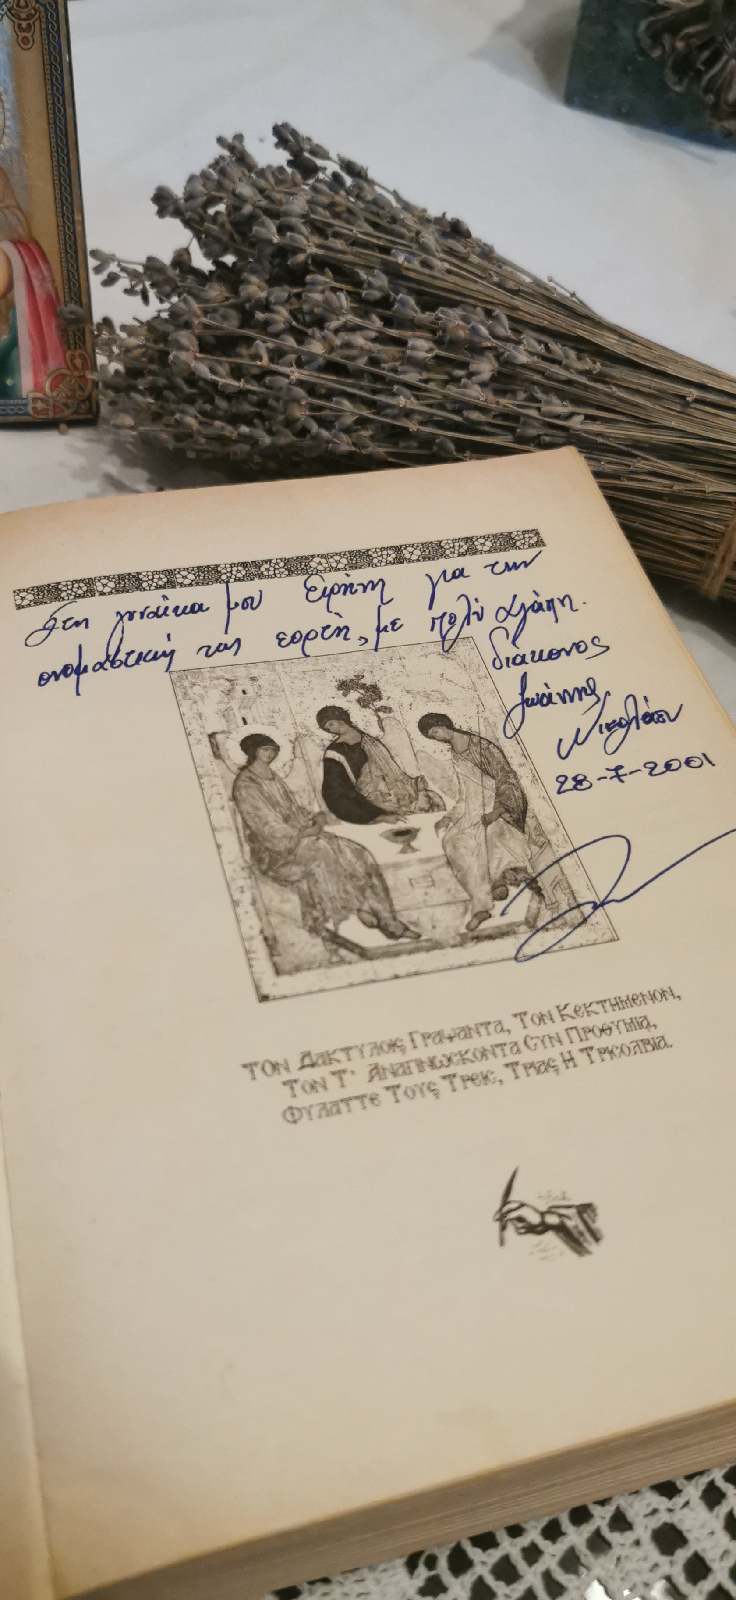 Στη γυναίκα μου Ειρήνη για την
ονομαστική της εορτή, με πολύ αγάπη.
διάκονος
Ιωάννης
Νικολάου
28-7-2001
ΤΟΝ ΔΑΚΤΥΛΟΙΣ ΓΡΑΨΑΝΤΑ, ΤΟΝ ΚΕΚΤΗΜΕΝΟΝ,
ΤΟΝ Τ' ΑΝΑΓΙΝΩΣΚΟΝΤΑ ΣΥΝ ΠΡΟΘΥΜΙΑ,
ΦΥΛΑΤΤΕ ΤΟΥΣ ΤΡΕΙΣ, ΤΡΙΑΣ Η ΤΡΙΣΟΛΒΙΑ.